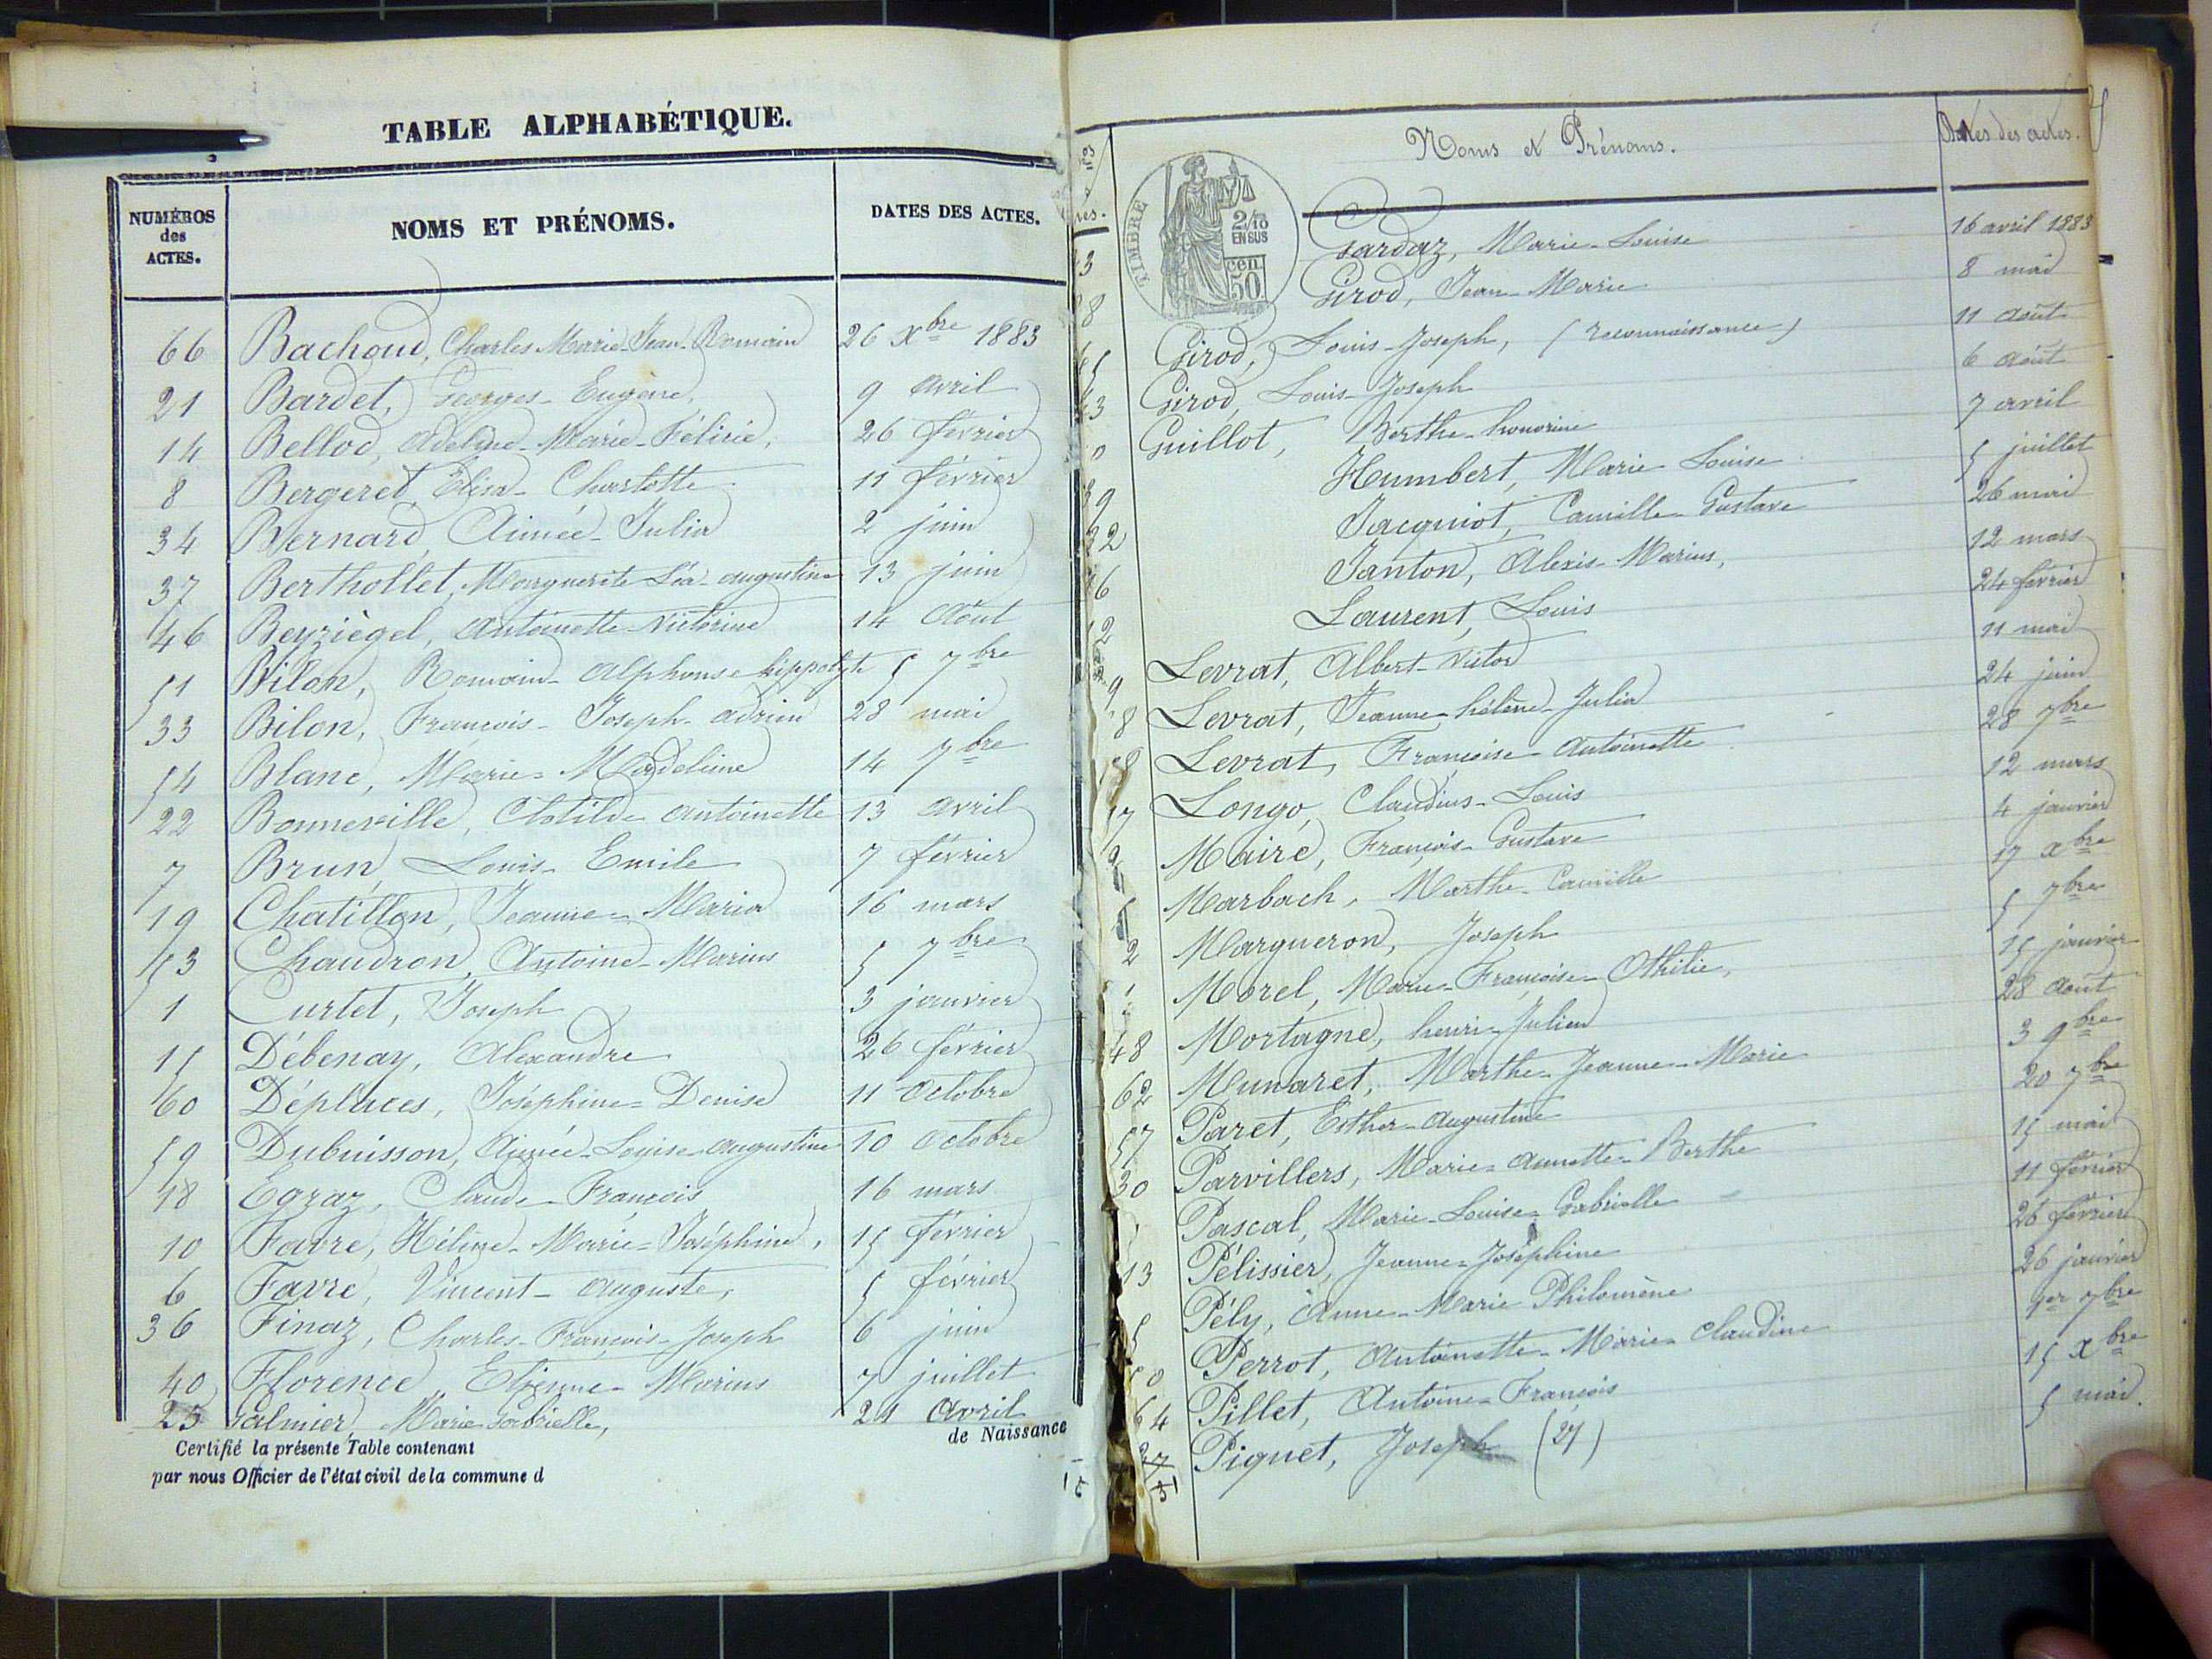 TABLE ALPHABÉTIQUE.
NUMÉROS des ACTES. NOMS ET PRÉNOMS. DATES DES ACTES.
66 Bachoud, Charles Marie Jean-Romain 26 Xbre 1883
21 Bardet, Georges-Eugène, 9 avril
14 Bellod, Adeline-Marie-Félicie, 26 février
8 Bergeret, Elisa-Charlotte 11 février
34 Bernard, Aimée-Julia 2 juin
37 Berthollet, Marguerite Léa-augustine 13 juin
46 Beyziègel, Antoinette-Victorine 14 Août
51 Bilon, Romain-Alphonse hippolyte 5 7bre
33 Bilon, François-Joseph-adrien 28 mai
54 Blanc, Marie-Madeleine 14 7bre
22 Bonneville, Clotilde antoinette 13 avril
7 Brun, Louis-Emile 7 février
19 Chatillon, Jeanne-Maria 16 mars
53 Chaudron, Antoine-Marius 5 7bre
1 Curtet, Joseph 3 janvier
15 Débenay, Alexandre 26 février
60 Déplaces, Joséphine-Denise 11 Octobre
59 Dubuisson, Aimée-Louise-augustine 10 Octobre
18 Egraz, Claude-François 16 mars
10 Favre, Hélène-Marie-Joséphine, 15 février
6 Favre, Vincent-Auguste, 5 février
36 Finaz, Charles-François-Joseph 6 juin
40 Florence, Etienne-Marius 7 juillet
25 Galmier, Marie Gabrielle, 21 Avril
Certifié la présente Table contenant de Naissance
par nous Officier de l'état civil de la commune d
Noms et Prénoms. Dates des actes.
TIMBRE
2/10
EN SUS
50
cen
Gardaz, Marie-Louise 16 avril 1883
8 Girod, Jean-Marie 8 mai
Girod, Louis-Joseph, (reconnaissance) 11 août
43 Girod, Louis-Joseph 6 août
0 Guillot, Berthe-honorine 7 avril
39 Humbert, Marie Louise 5 juillet
32 Jacquiot, Camille-Gustave 26 mai
16 Janton, Alexis-Marius, 12 mars
12 Laurent, Louis 24 février
9 Levrat, Albert-Victor 11 mai
8 Levrat, Jeanne-hélène-Julia 24 juin
58 Levrat, Françoise-Antoinette 28 7bre
17 Longo, Claudius-Louis 12 mars
2 Maire, François-Gustave 4 janvier
Marbach, Marthe-Camille 17 Xbre
2 Margueron, Joseph 5 7bre
Morel, Marie-Françoise-Othilie, 15 janvier
48 Mortagne, henri-Julien 28 Août
62 Munaret, Marthe-Jeanne-Marie 3 9bre
57 Paret, Esther-Augustine 20 7bre
30 Parvillers, Marie-Annette-Berthe 15 mai
Pascal, Marie-Louise-Gabrielle 11 février
13 Pélissier, Jeanne-Joséphine 26 février
5 Pély, Anne-Marie Philomène 26 janvier
50 Perrot, Antoinette-Marie-Claudine 1er 7bre
64 Pillet, Antoine-François 15 Xbre
27 Piquet, Joseph (27) 5 mai.